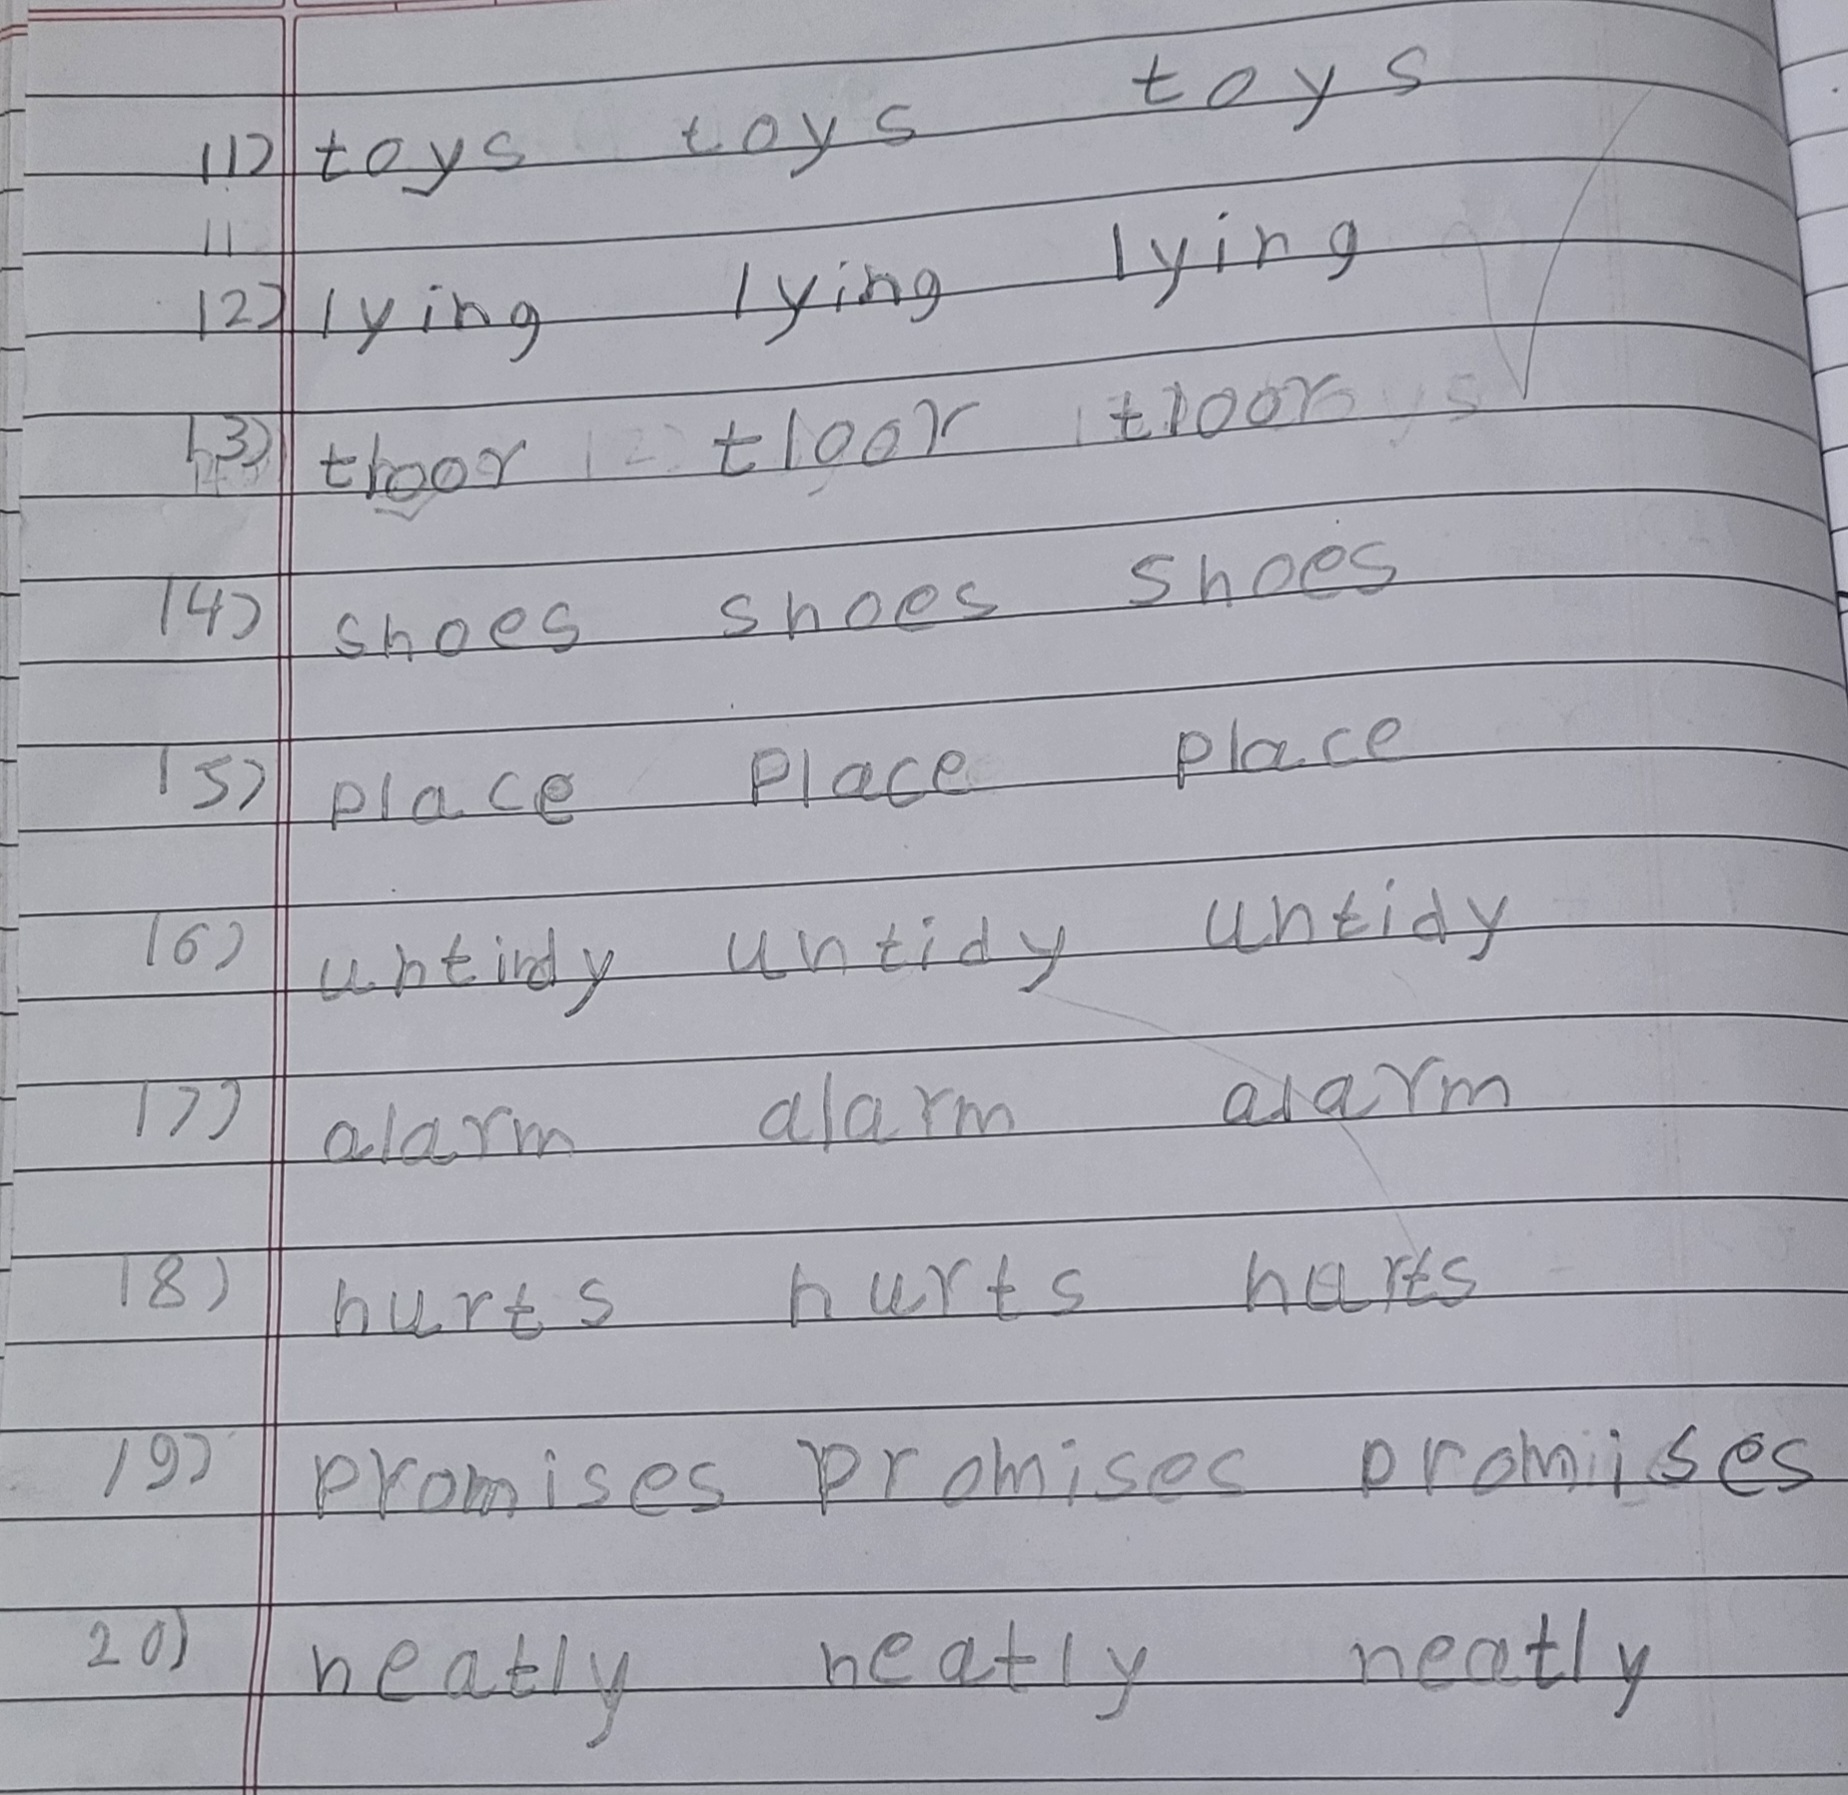 11) toys toys toys
11
12) lying lying lying
13) tloor tloor tloor
14) shoes shoes shoes
15) place place place
16) untidy untidy untidy
17) alarm alarm alarm
18) hurts hurts hurts
19) promises promises promises
20) neatly neatly neatly